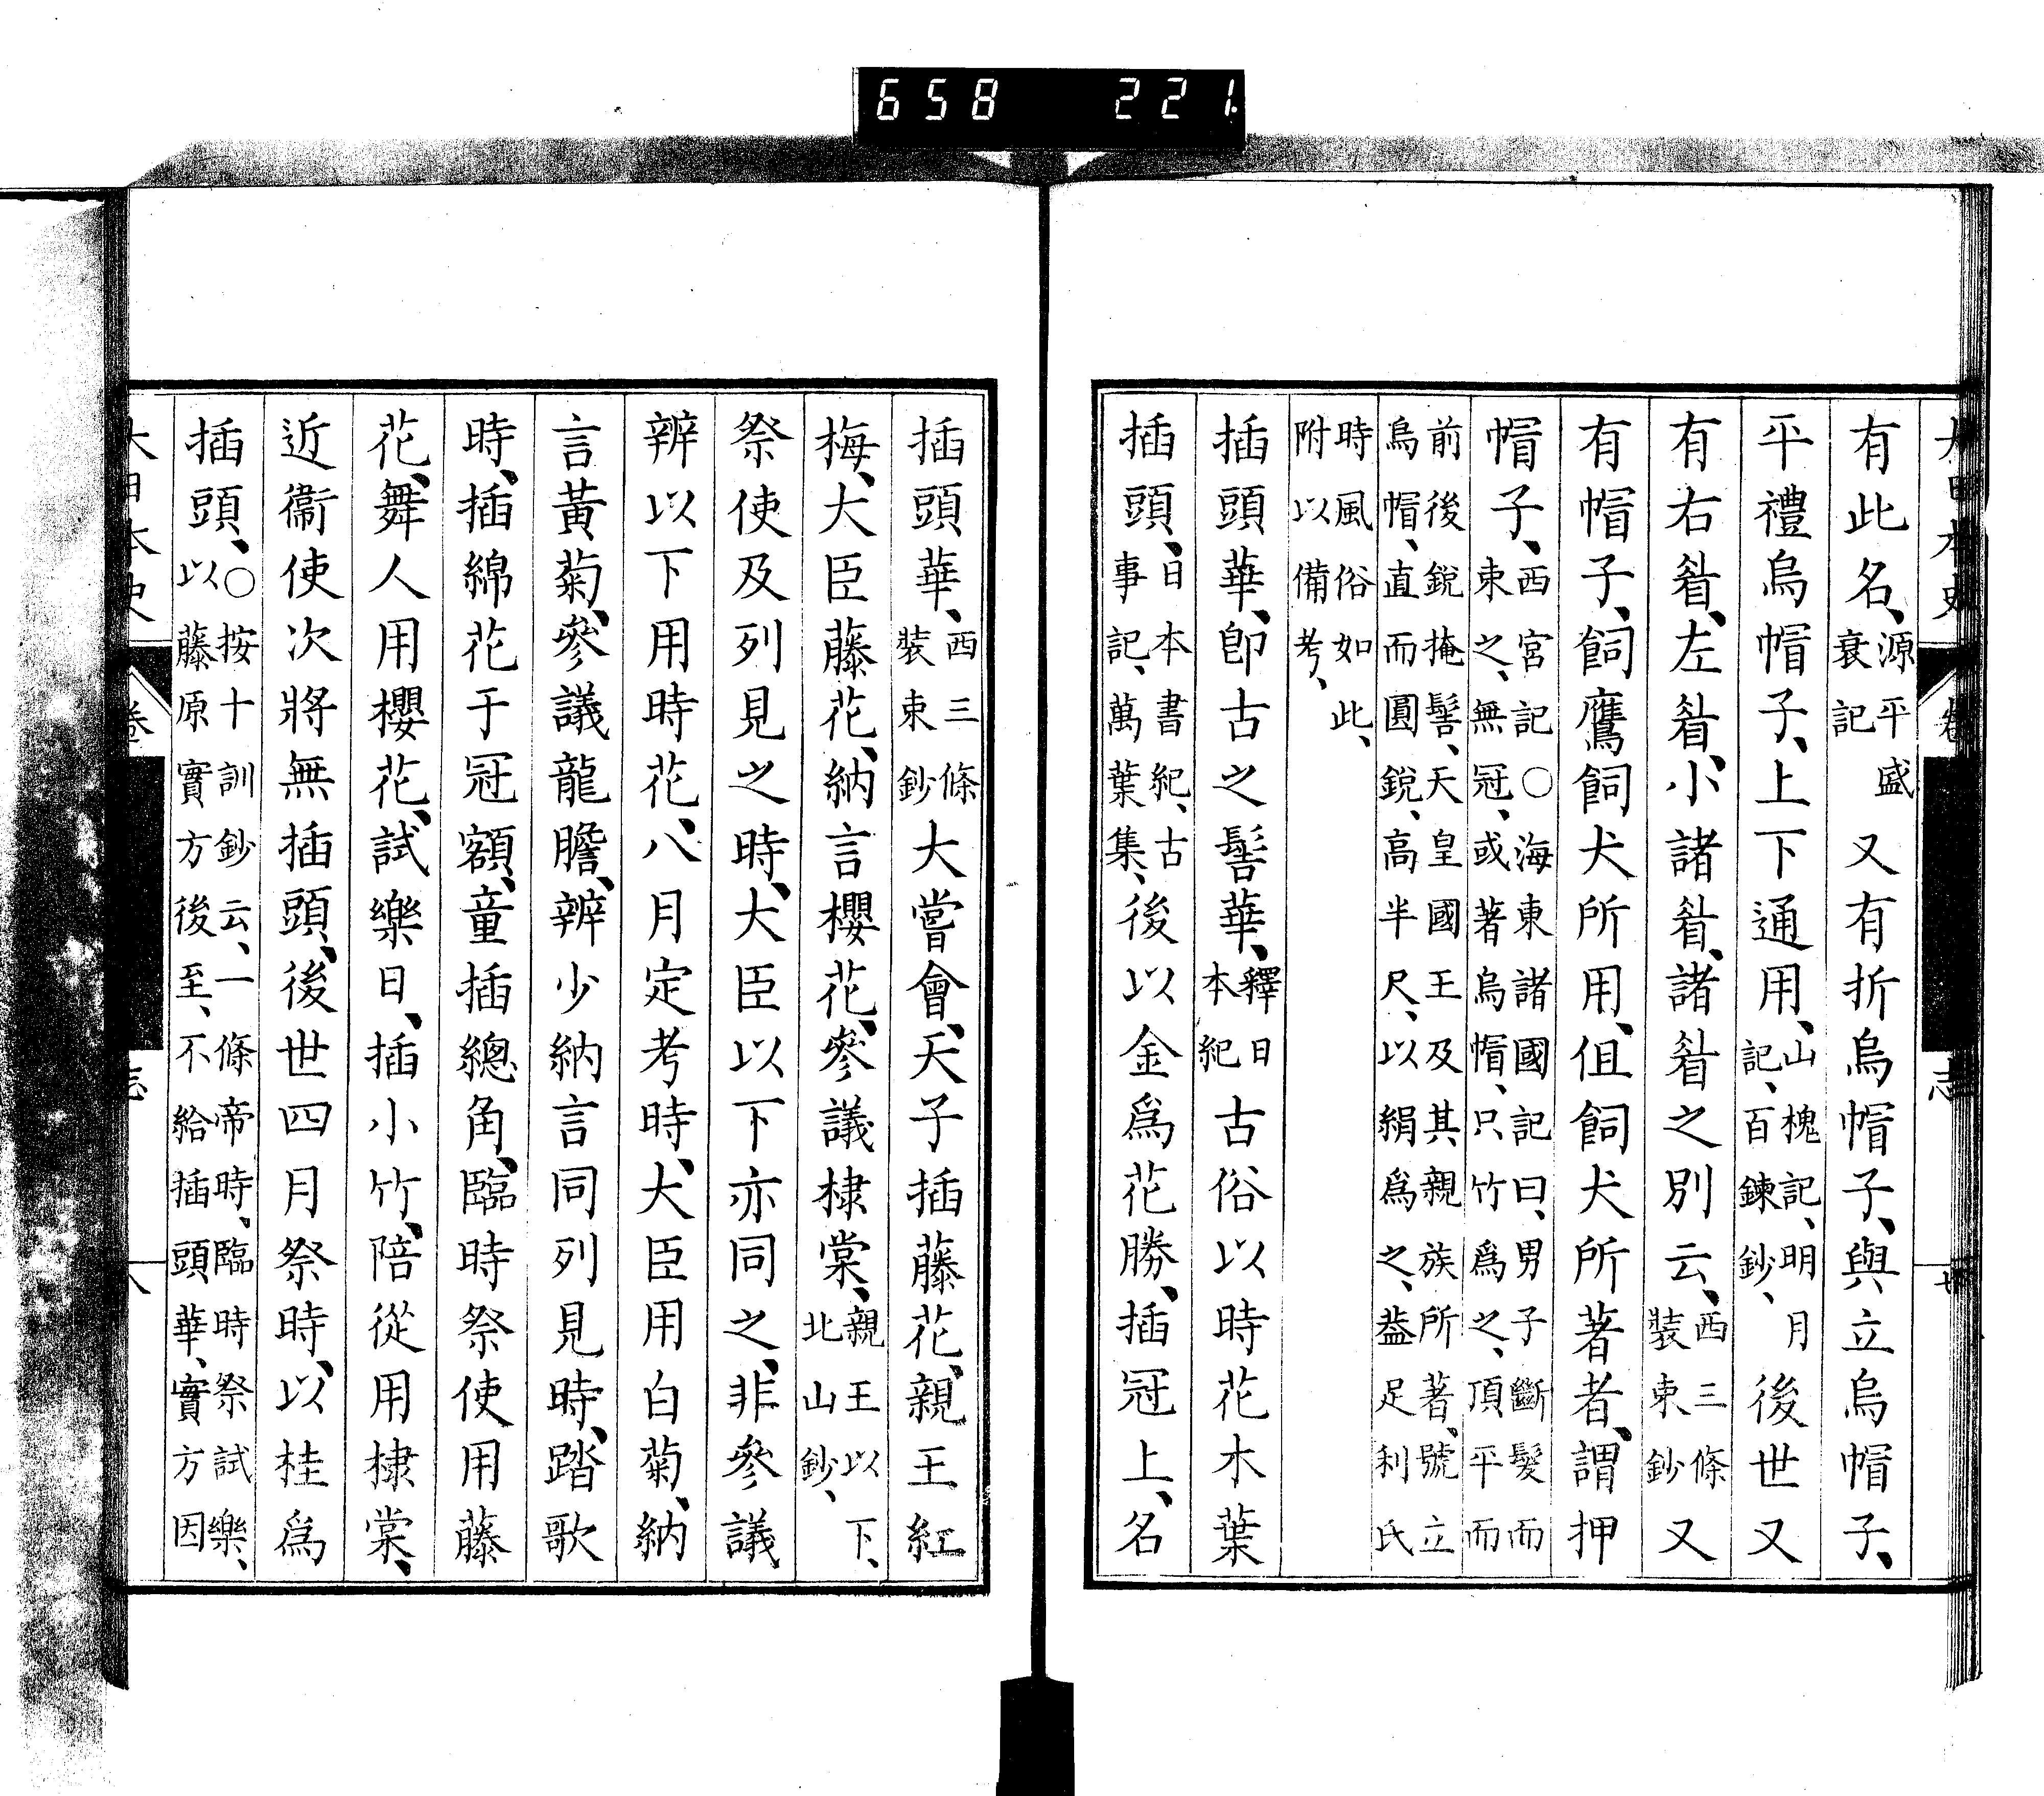 658 221
有此名、源平盛衰記又有折烏帽子、與立烏帽子、
平禮烏帽子、上下通用、山槐記、明月記、百鍊鈔、後世又
有右眉、左眉、小諸眉、諸眉之別云、西三條裝束鈔又
有帽子、飼鷹飼犬所用、但飼犬所著者、謂押
帽子、西宮記○海東諸國記曰、男子斷髮而束之、無冠、或著烏帽、只竹爲之、頂平而
前後銳掩髻、天皇國王及其親族所著、號立烏帽、直而圓銳、高半尺、以絹爲之、葢足利氏
時風俗如此、附以備考、
插頭華、卽古之髻華、釋日本紀古俗以時花木葉
插頭、日本書紀、古事記、萬葉集、後以金爲花勝、插冠上、名
插頭華、西三條裝束鈔大嘗會、天子插藤花、親王紅
梅、大臣藤花、納言櫻花、參議棣棠、親王以下、北山鈔、
祭使及列見之時、大臣以下亦同之、非參議
辨以下用時花、八月定考時、大臣用白菊、納
言黃菊、參議龍膽、辨少納言同列見時、踏歌
時、插綿花于冠額、童插總角、臨時祭使用藤
花、舞人用櫻花、試樂日、插小竹、陪從用棣棠、
近衞使次將無插頭、後世四月祭時、以桂爲
插頭、○按十訓鈔云、一條帝時、臨時祭試樂、以藤原實方後至、不給插頭華、實方因